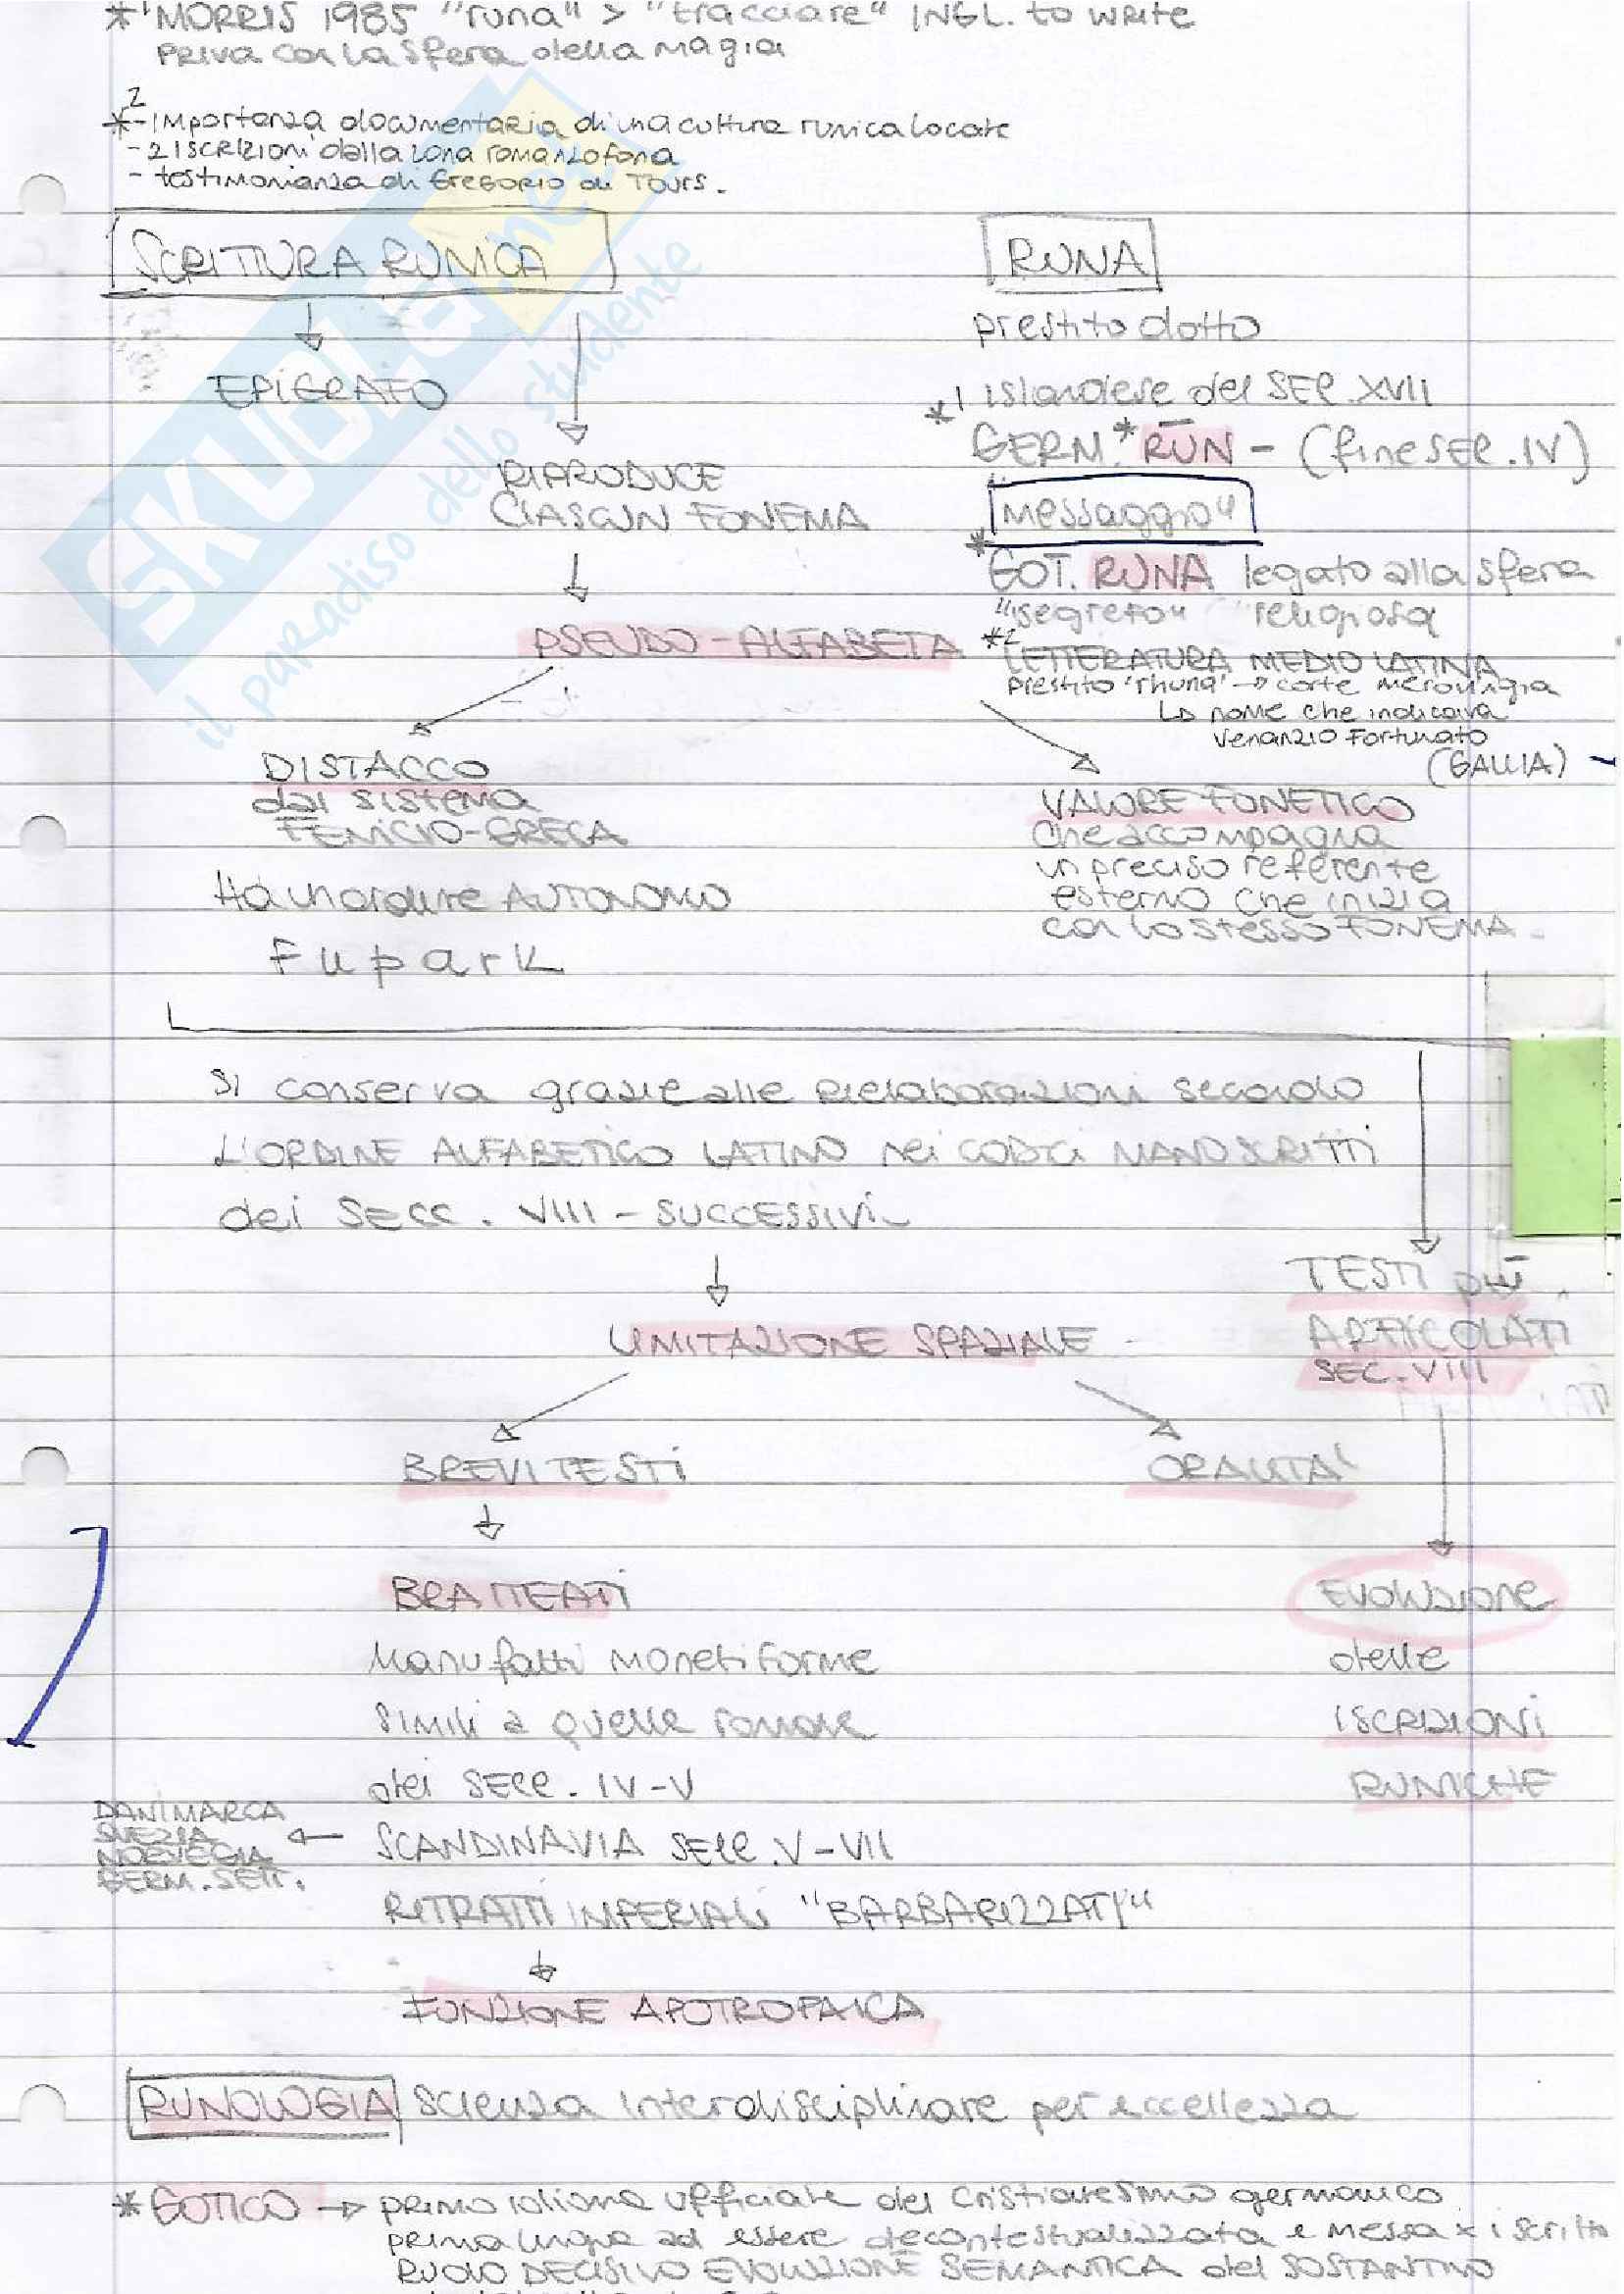 *1 MORRIS 1985 "runa" > "tracciare" INGL. to write
PRIVA con la sfera della magia
*2 - importanza documentaria di una cultura runica locale
- 2 iscrizioni dalla zona romanzofona
- testimonianza di GREGORIO di TOURS.
SCRITTURA RUNICA
EPIGRAFO
RIPRODUCE
CIASCUN FONEMA
PSEUDO-ALFABETA
DISTACCO
dal sistema
FENICIO-GRECA
Ha un ordine AUTONOMO
fuþark
RUNA
prestito dotto
*1 islandese del SEC. XVII
GERM. *RŪN - (fine SEC. IV)
"messaggio"
* GOT. RUNA legato alla sfera
"segreto" religiosa
*2 LETTERATURA MEDIO LATINA
prestito 'rhuna' → corte merovingia
Lo nome che indicava
Venanzio Fortunato
(GALLIA)
VALORE FONETICO
che accompagna
un preciso referente
esterno che inizia
con lo stesso FONEMA.
Si conserva grazie alle rielaborazioni secondo
L'ORDINE ALFABETICO LATINO nei CODICI MANOSCRITTI
dei SECC. VIII - SUCCESSIVI
LIMITAZIONE SPAZIALE
TESTI più
ARTICOLATI
SEC. VIII
BREVI TESTI
ORALITA'
BRATTEATI
Manufatti monetiforme
simili a quelle romane
dei SECC. IV-V
SCANDINAVIA SECC. V-VII
DANIMARCA
SVEZIA
NORVEGIA
GERM. SETT.
RITRATTI IMPERIALI "BARBARIZZATI"
FUNZIONE APOTROPAICA
EVOLUZIONE
delle
ISCRIZIONI
RUNICHE
RUNOLOGIA scienza interdisciplinare per eccellezza
* GOTICO → primo idioma ufficiale del Cristianesimo germanico
prima lingua ad essere decontestualizzata e messa x iscritto
RUOLO DECISIVO EVOLUZIONE SEMANTICA del SOSTANTIVO
SKUOLA.net
il paradiso dello studente